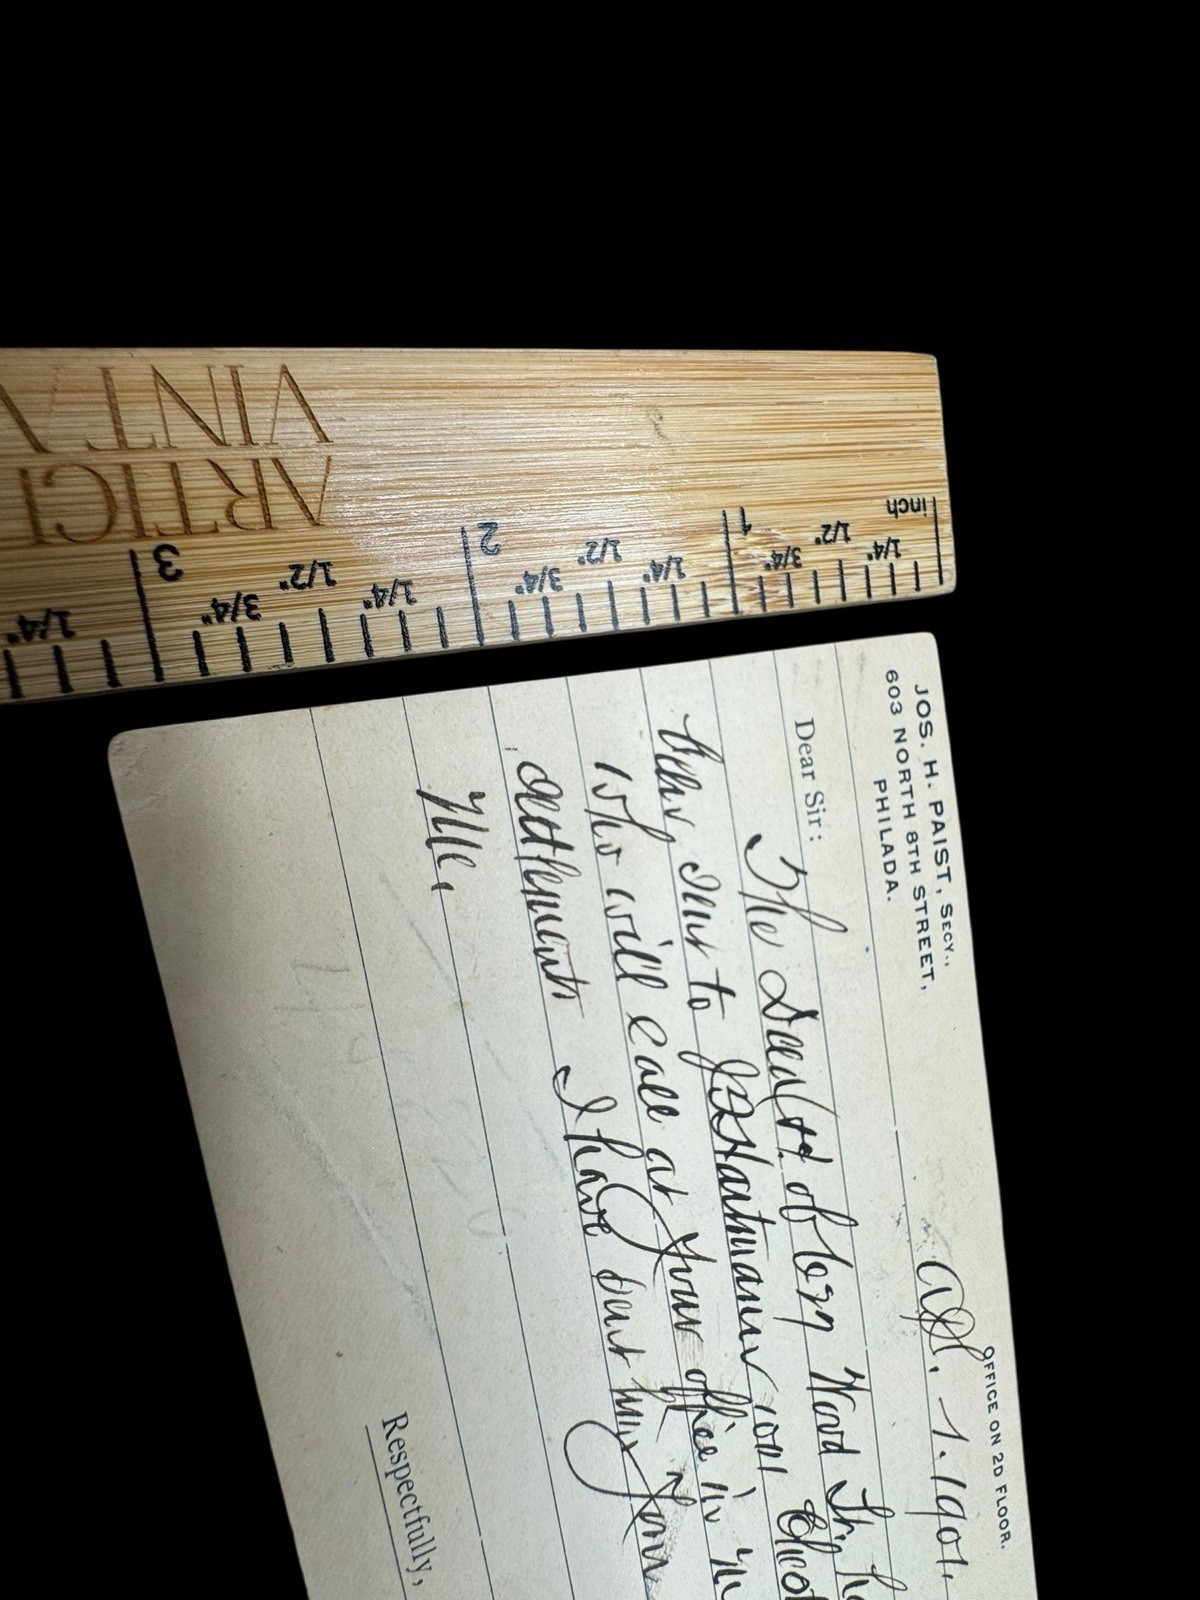 VINTA
ARTICI
inch
1/4"
1/2"
3/4"
1
1/4"
1/2"
3/4"
2
1/4"
1/2"
3/4"
3
1/4"
JOS. H. PAIST, SECY.,
603 NORTH 8TH STREET,
PHILADA.
OFFICE ON 2D FLOOR.
1.1901.
Dear Sir:
The of Wood
sent to Hartmann 1001
who will call at your office in
settlement I have sent him your
Respectfully,